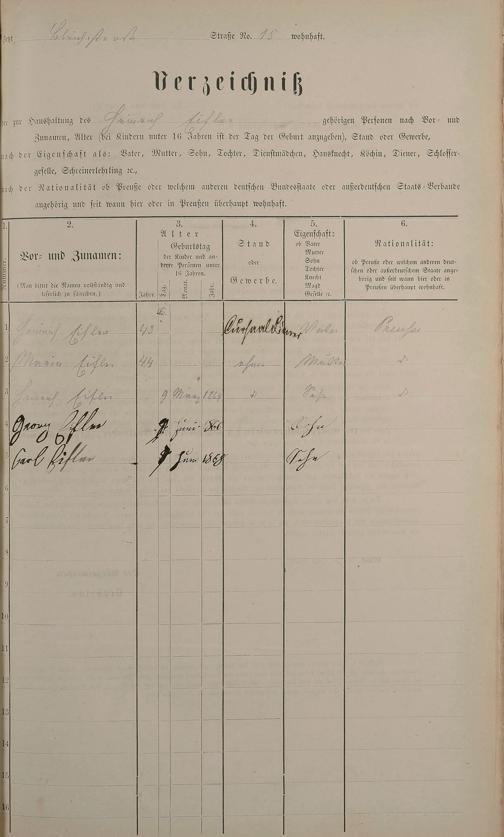 Straße No. 15 wohnhaft.
Verzeichniß
der zur Haushaltung des Heinrich Eifler gehörigen Personen nach Vor- und
Zunamen, Alter (bei Kindern unter 16 Jahren ist der Tag der Geburt anzugeben), Stand oder Gewerbe,
nach der Eigenschaft als: Vater, Mutter, Sohn, Tochter, Dienstmädchen, Hausknecht, Köchin, Diener, Schlosser-
geselle, Schreinerlehrling ꝛc.,
nach der Nationalität ob Preuße oder welchem anderen deutschen Bundesstaate oder außerdeutschen Staats-Verbande
angehörig und seit wann hier oder in Preußen überhaupt wohnhaft.
1. 2. 3. 4. 5. 6.
Nummer.
Vor- und Zunamen:
(Man bittet die Namen vollständig und
leserlich zu schreiben.)
Alter
Geburtstag
der Kinder und an-
deren Personen unter
16 Jahren.
Jahre. Tag. Monat. Jahr.
Stand
oder
Gewerbe.
Eigenschaft:
ob Vater
Mutter
Sohn
Tochter
Knecht
Magd
Geselle ꝛc.
Nationalität:
ob Preuße oder welchem anderen deut-
schen oder außerdeutschen Staate ange-
hörig und seit wann hier oder in
Preußen überhaupt wohnhaft.
1 Heinrich Eifler 43 Cursaaldiener Vater Preuße
2 Maria Eifler 44 ohne Mutter d
3 Heinrich Eifler 9 März d Sohn d
4 Georg Eifler Juni Sohn
5 Carl Eifler Juni 1868 Sohn
6
7
8
9
10
11
12
13
14
15
16